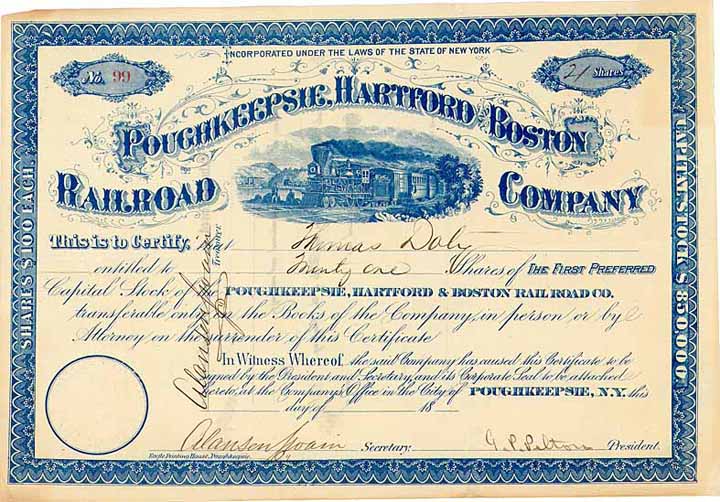 INCORPORATED UNDER THE LAWS OF THE STATE OF NEW YORK
No. 99
21 Shares
POUGHKEEPSIE, HARTFORD AND BOSTON
RAILROAD COMPANY
This is to Certify, that Thomas Doty
entitled to Twenty one Shares of THE FIRST PREFERRED
Capital Stock of POUGHKEEPSIE, HARTFORD & BOSTON RAIL ROAD CO.
transferable only on the Books of the Company, in person or by
Attorney on the surrender of this Certificate
In Witness Whereof, the said Company has caused this Certificate to be
signed by the President and Secretary, and its Corporate Seal to be attached
hereto, at the Company's Office in the City of POUGHKEEPSIE, N.Y. this
day of 18
Alansen Swain Secretary. G. P. Pelton President.
Eagle Printing House, Poughkeepsie.
Alansen Swain
Treasurer
SHARES $100 EACH.
CAPITAL STOCK $850,000